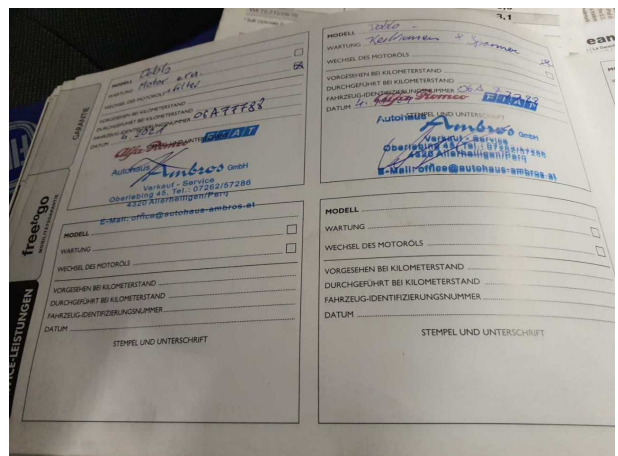 3,1
GARANTIE
MODELL Doblo
WARTUNG Motor
WECHSEL DES MOTORÖLS Filter
VORGESEHEN BEI KILOMETERSTAND
DURCHGEFÜHRT BEI KILOMETERSTAND
FAHRZEUG-IDENTIFIZIERUNGSNUMMER 06A77788
DATUM 4 2021
Alfa Romeo FIAT
Autohaus Ambros GmbH
Verkauf - Service
Oberlebing 45, Tel.: 07262/57286
4320 Allerheiligen/Perg
E-Mail: office@autohaus-ambros.at
MODELL Doblo
WARTUNG Keilriemen + Spanner
WECHSEL DES MOTORÖLS
VORGESEHEN BEI KILOMETERSTAND
DURCHGEFÜHRT BEI KILOMETERSTAND
FAHRZEUG-IDENTIFIZIERUNGSNUMMER 06A77788
DATUM 4.
Alfa Romeo FIAT
STEMPEL UND UNTERSCHRIFT
Autohaus Ambros GmbH
Verkauf - Service
Oberlebing 45, Tel.: 07262/57286
4320 Allerheiligen/Perg
E-Mail: office@autohaus-ambros.at
freetogo
MODELL
WARTUNG
WECHSEL DES MOTORÖLS
VORGESEHEN BEI KILOMETERSTAND
DURCHGEFÜHRT BEI KILOMETERSTAND
FAHRZEUG-IDENTIFIZIERUNGSNUMMER
DATUM
STEMPEL UND UNTERSCHRIFT
MODELL
WARTUNG
WECHSEL DES MOTORÖLS
VORGESEHEN BEI KILOMETERSTAND
DURCHGEFÜHRT BEI KILOMETERSTAND
FAHRZEUG-IDENTIFIZIERUNGSNUMMER
DATUM
STEMPEL UND UNTERSCHRIFT